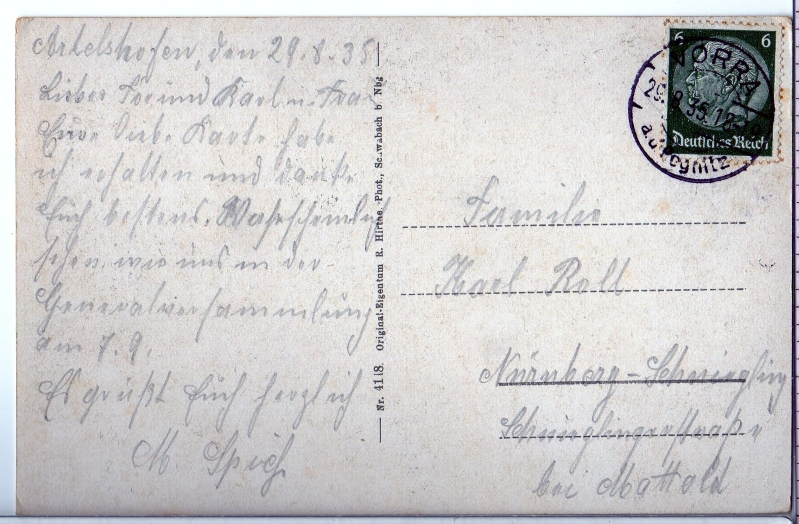 Artelshofen, den 29.8.35
Lieber Freund Karl u. Frau
Eure liebe Karte habe
ich erhalten und danke
Euch bestens. Wahrscheinlich
sehen wir uns in der
Generalversammlung
am 7.9.
Es grüßt Euch herzlich
M. Spieß
Nr. 4118. Original-Eigentum R. Hirthe, Phot., Schwabach b Nbg
6 6
Deutsches Reich
VORRA
29.8.35.12
a.d. Pegnitz
Familie
Karl Roll
Nürnberg-Schniegling
Schnieglingerstraße
bei Mattold